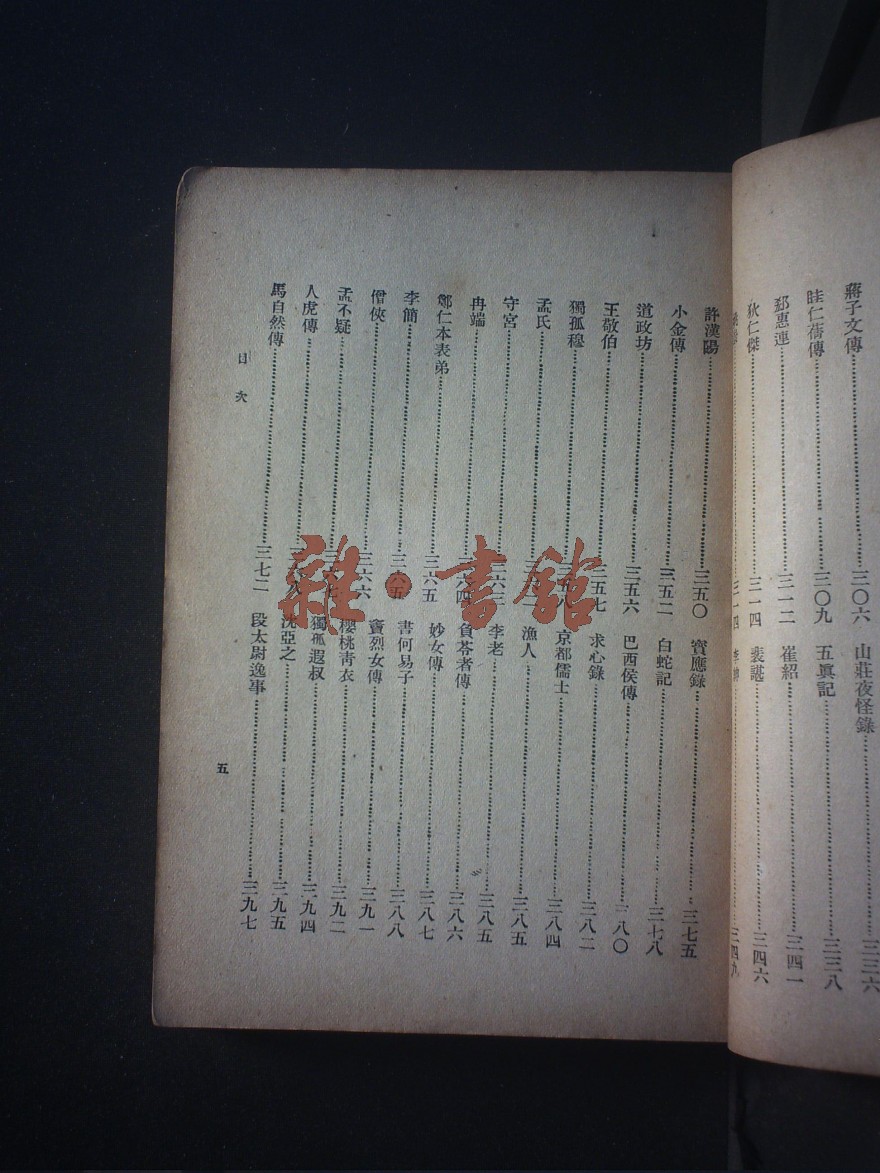 蔣子文傳……三〇六
眭仁蒨傳……三〇九
郄惠連……三一二
狄仁傑……三一四
三一四
山莊夜怪錄……三三六
五眞記……三三八
崔紹……三四一
裴諶……三四六
三四九
許漢陽……三五〇
小金傳……三五二
道政坊……三五六
王敬伯……三五七
獨孤穆……三五八
孟氏……
守宮……
冉端……三六四
鄭仁本表弟……三六五
李簡……三六五
僧俠……三六六
孟不疑……三六七
人虎傳……三六八
馬自然傳……三七二
寶應錄……三七五
白蛇記……三七八
巴西侯傳……三八〇
求心錄……三八二
京都儒士……三八四
漁人……三八五
李老……三八五
負苓者傳……三八六
妙女傳……三八七
書何易子……三八八
竇烈女傳……三九一
櫻桃靑衣……三九二
獨孤遐叔……三九四
沈亞之……三九五
段太尉逸事……三九七
目次
五
雜·書館